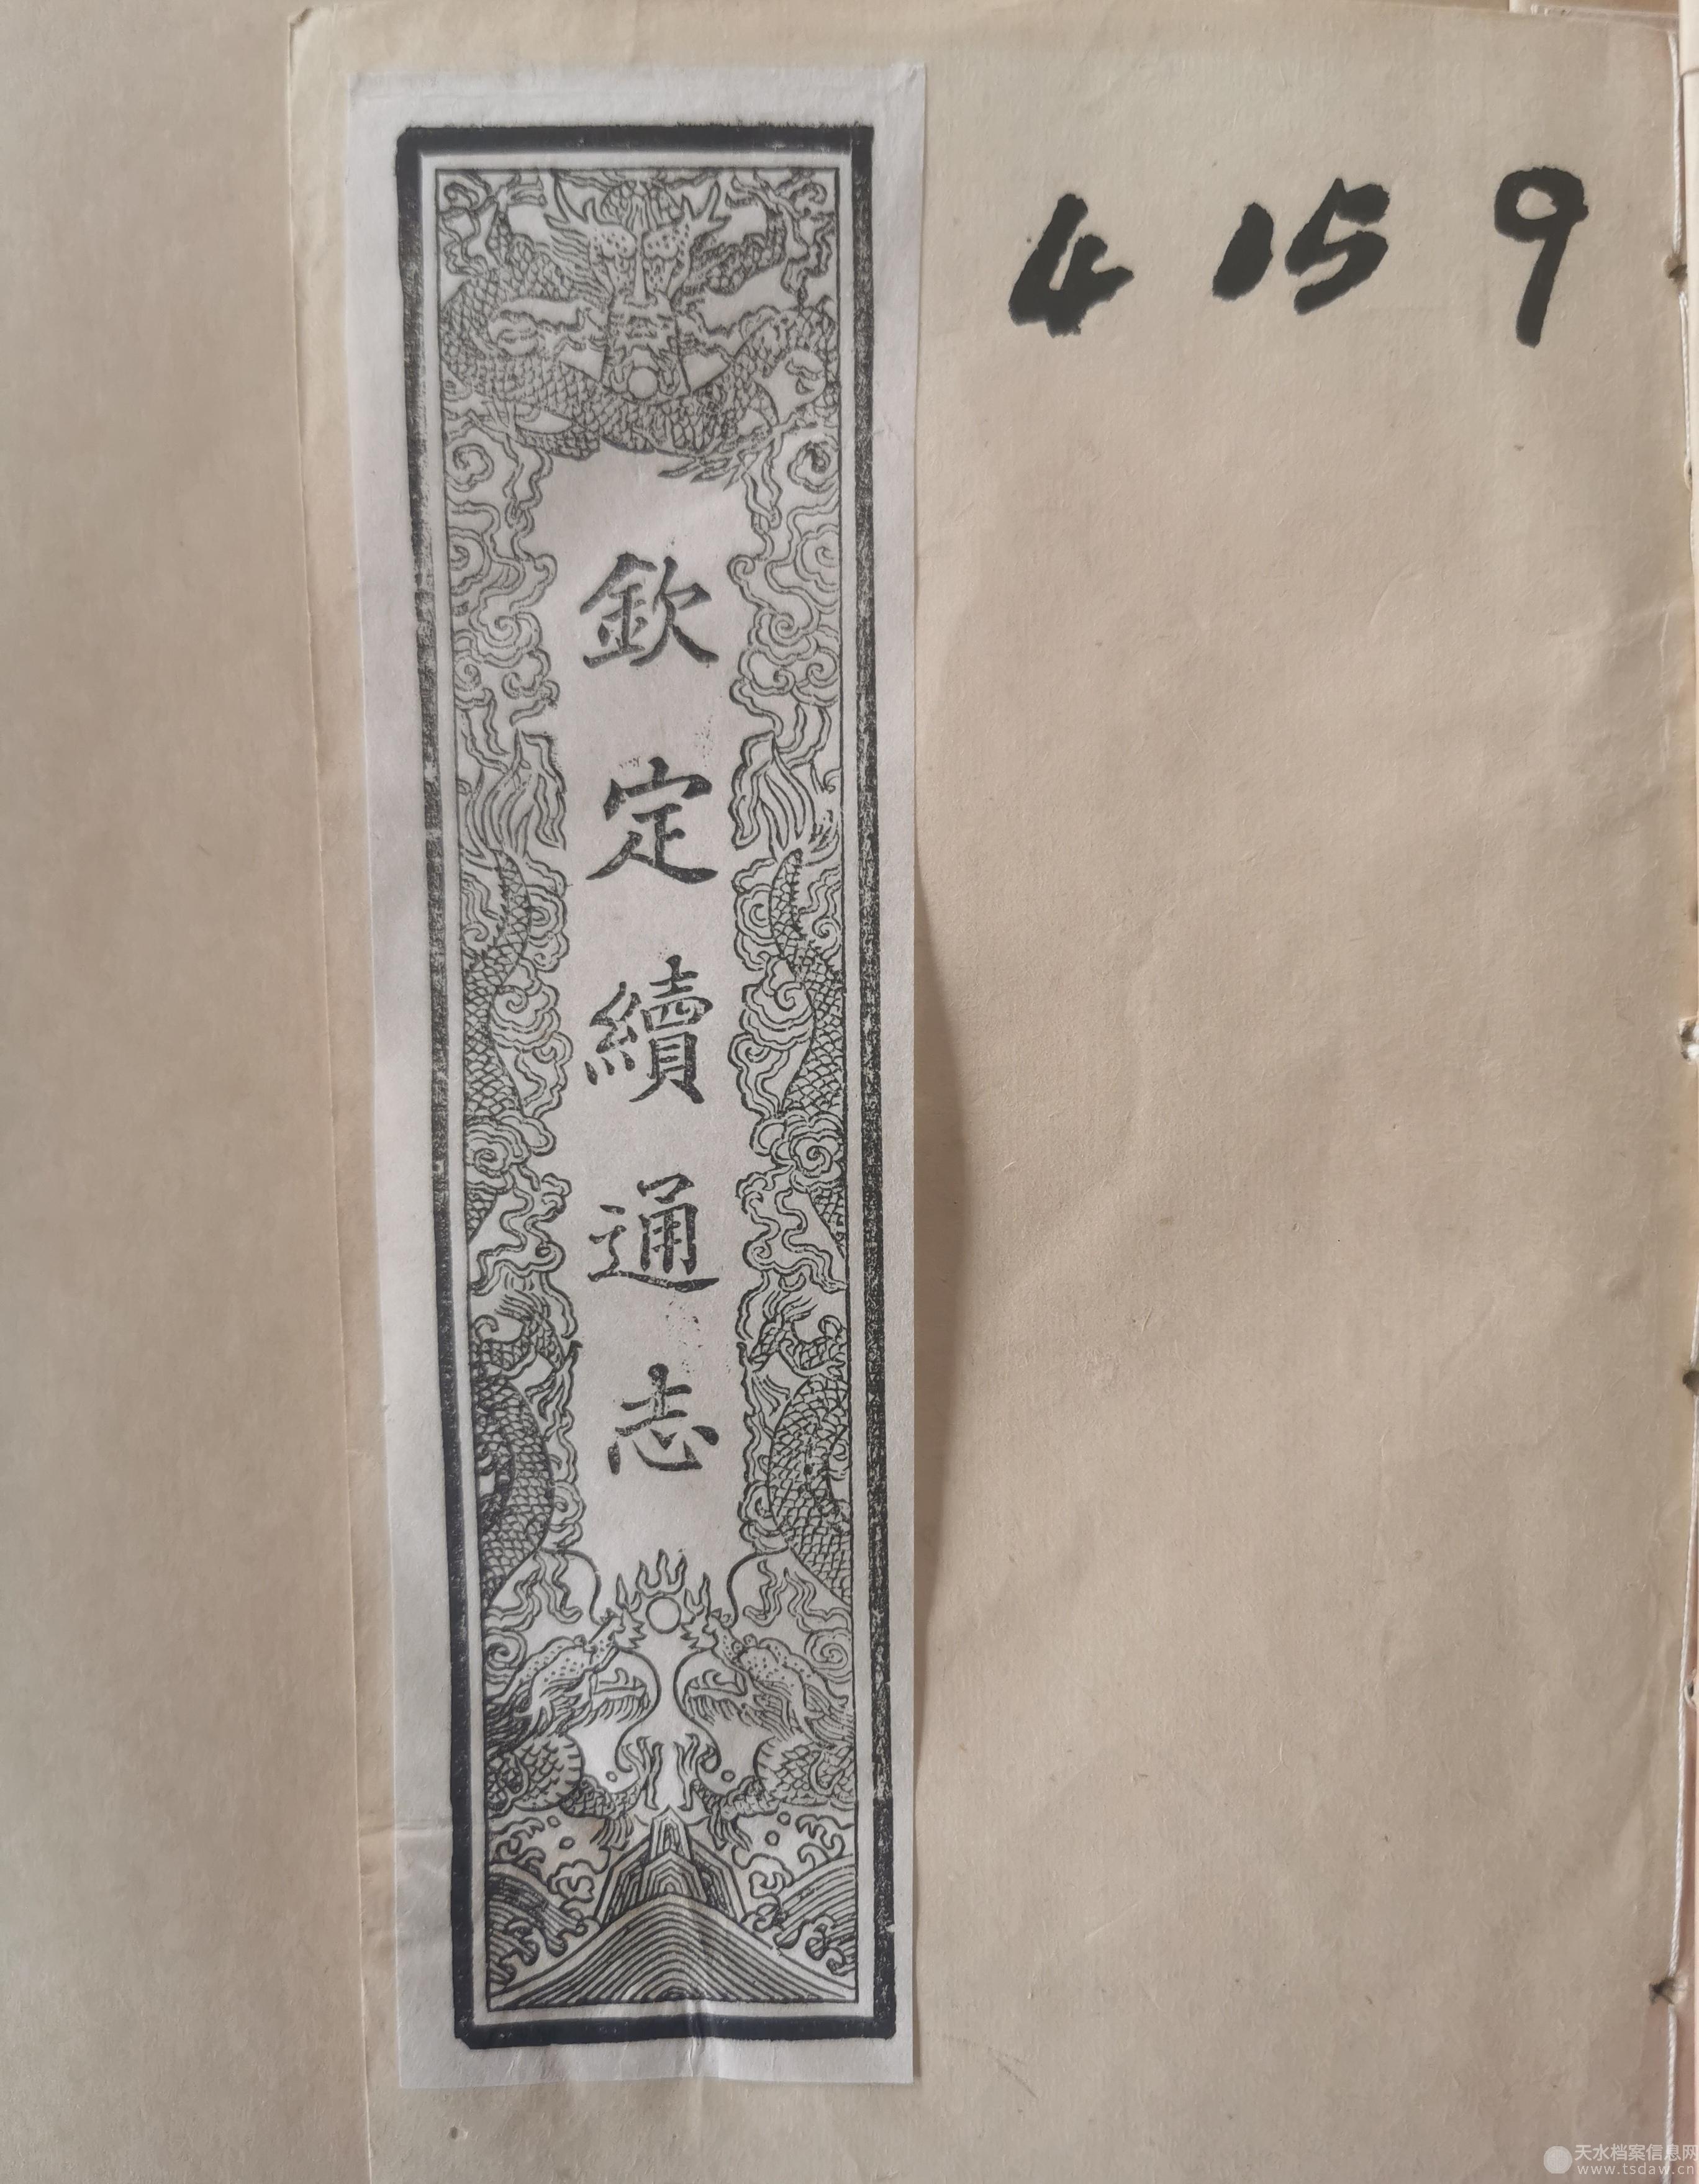 欽定續通志
4 15 9
天水档案信息网
www.tsdaw.cn